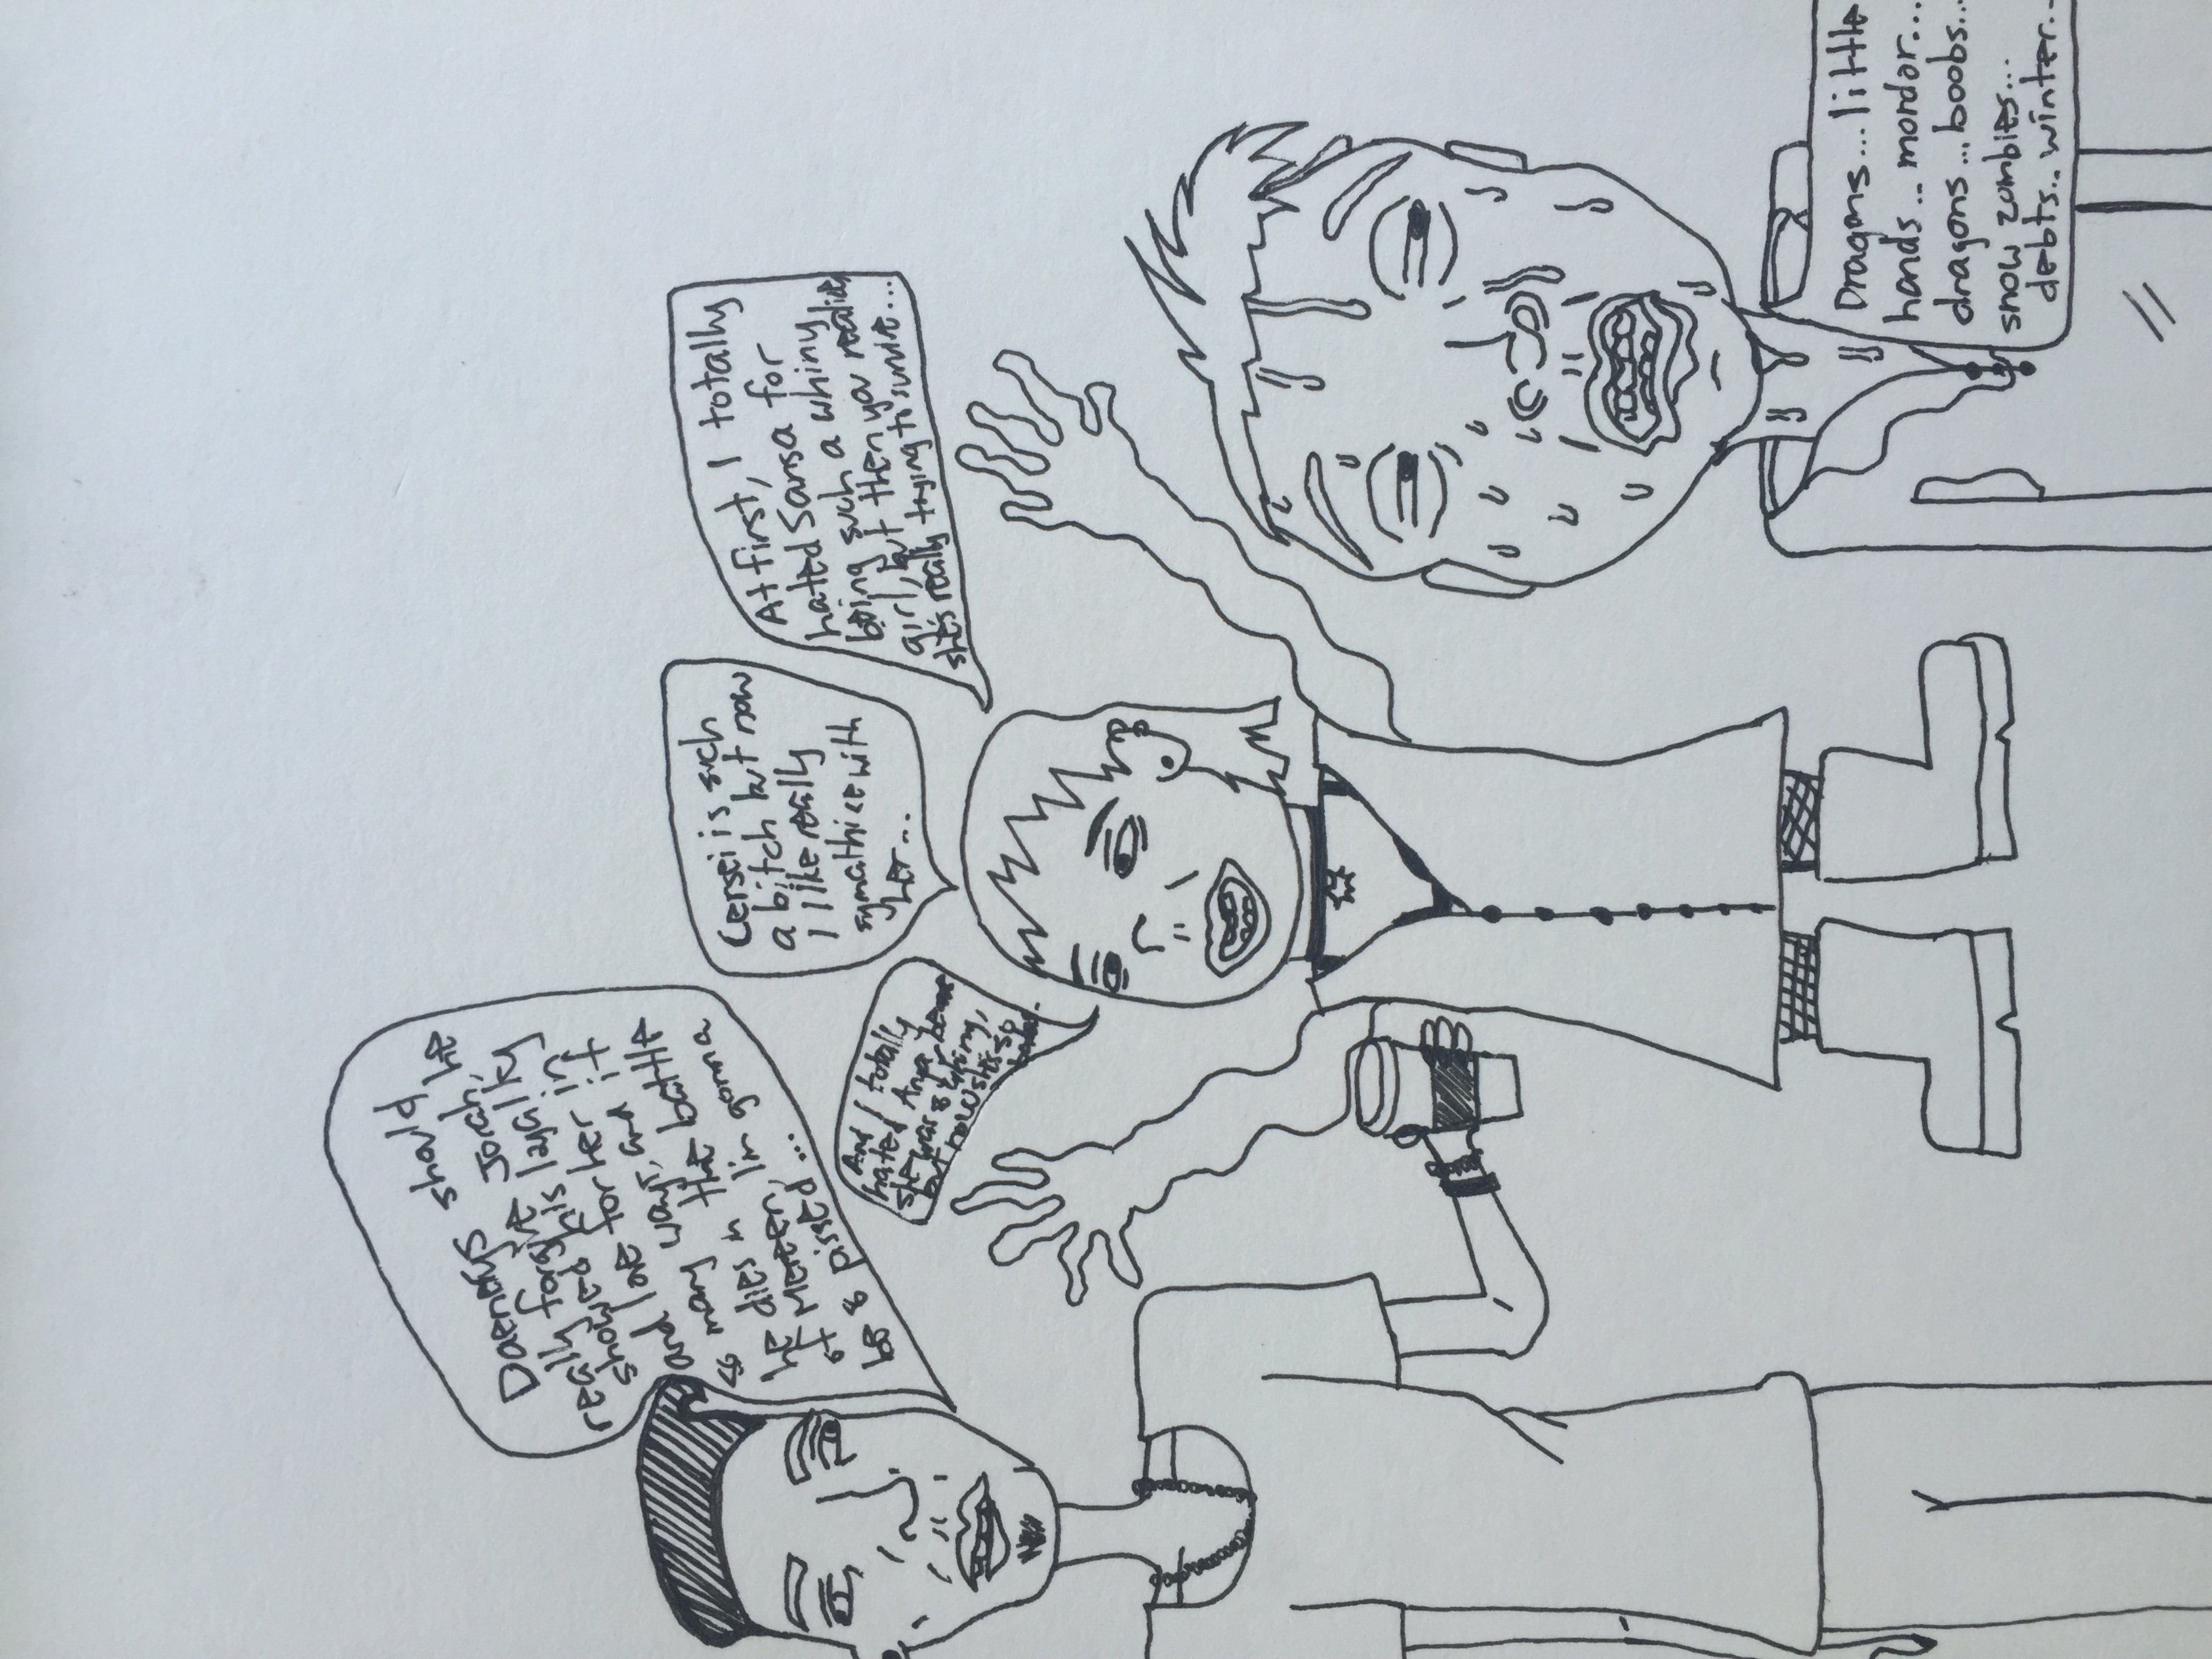 Daenerys should
really forgive Jorah, he
showed his loyalty
and love for her in
so many ways, and if
he dies in the battle
of Mereen, I'm gonna
be & pissed...
And I totally
hated Arya
she was
but now she's so
Cersei is such
a bitch but now
I like really
symathize with
her...
At first, I totally
hated Sansa for
being such a whiny
girl, but then you realize,
she's really trying to survive...
Dragons...little
hands... mordor...
dragons...boobs...
snow zombies...
debts... winter...